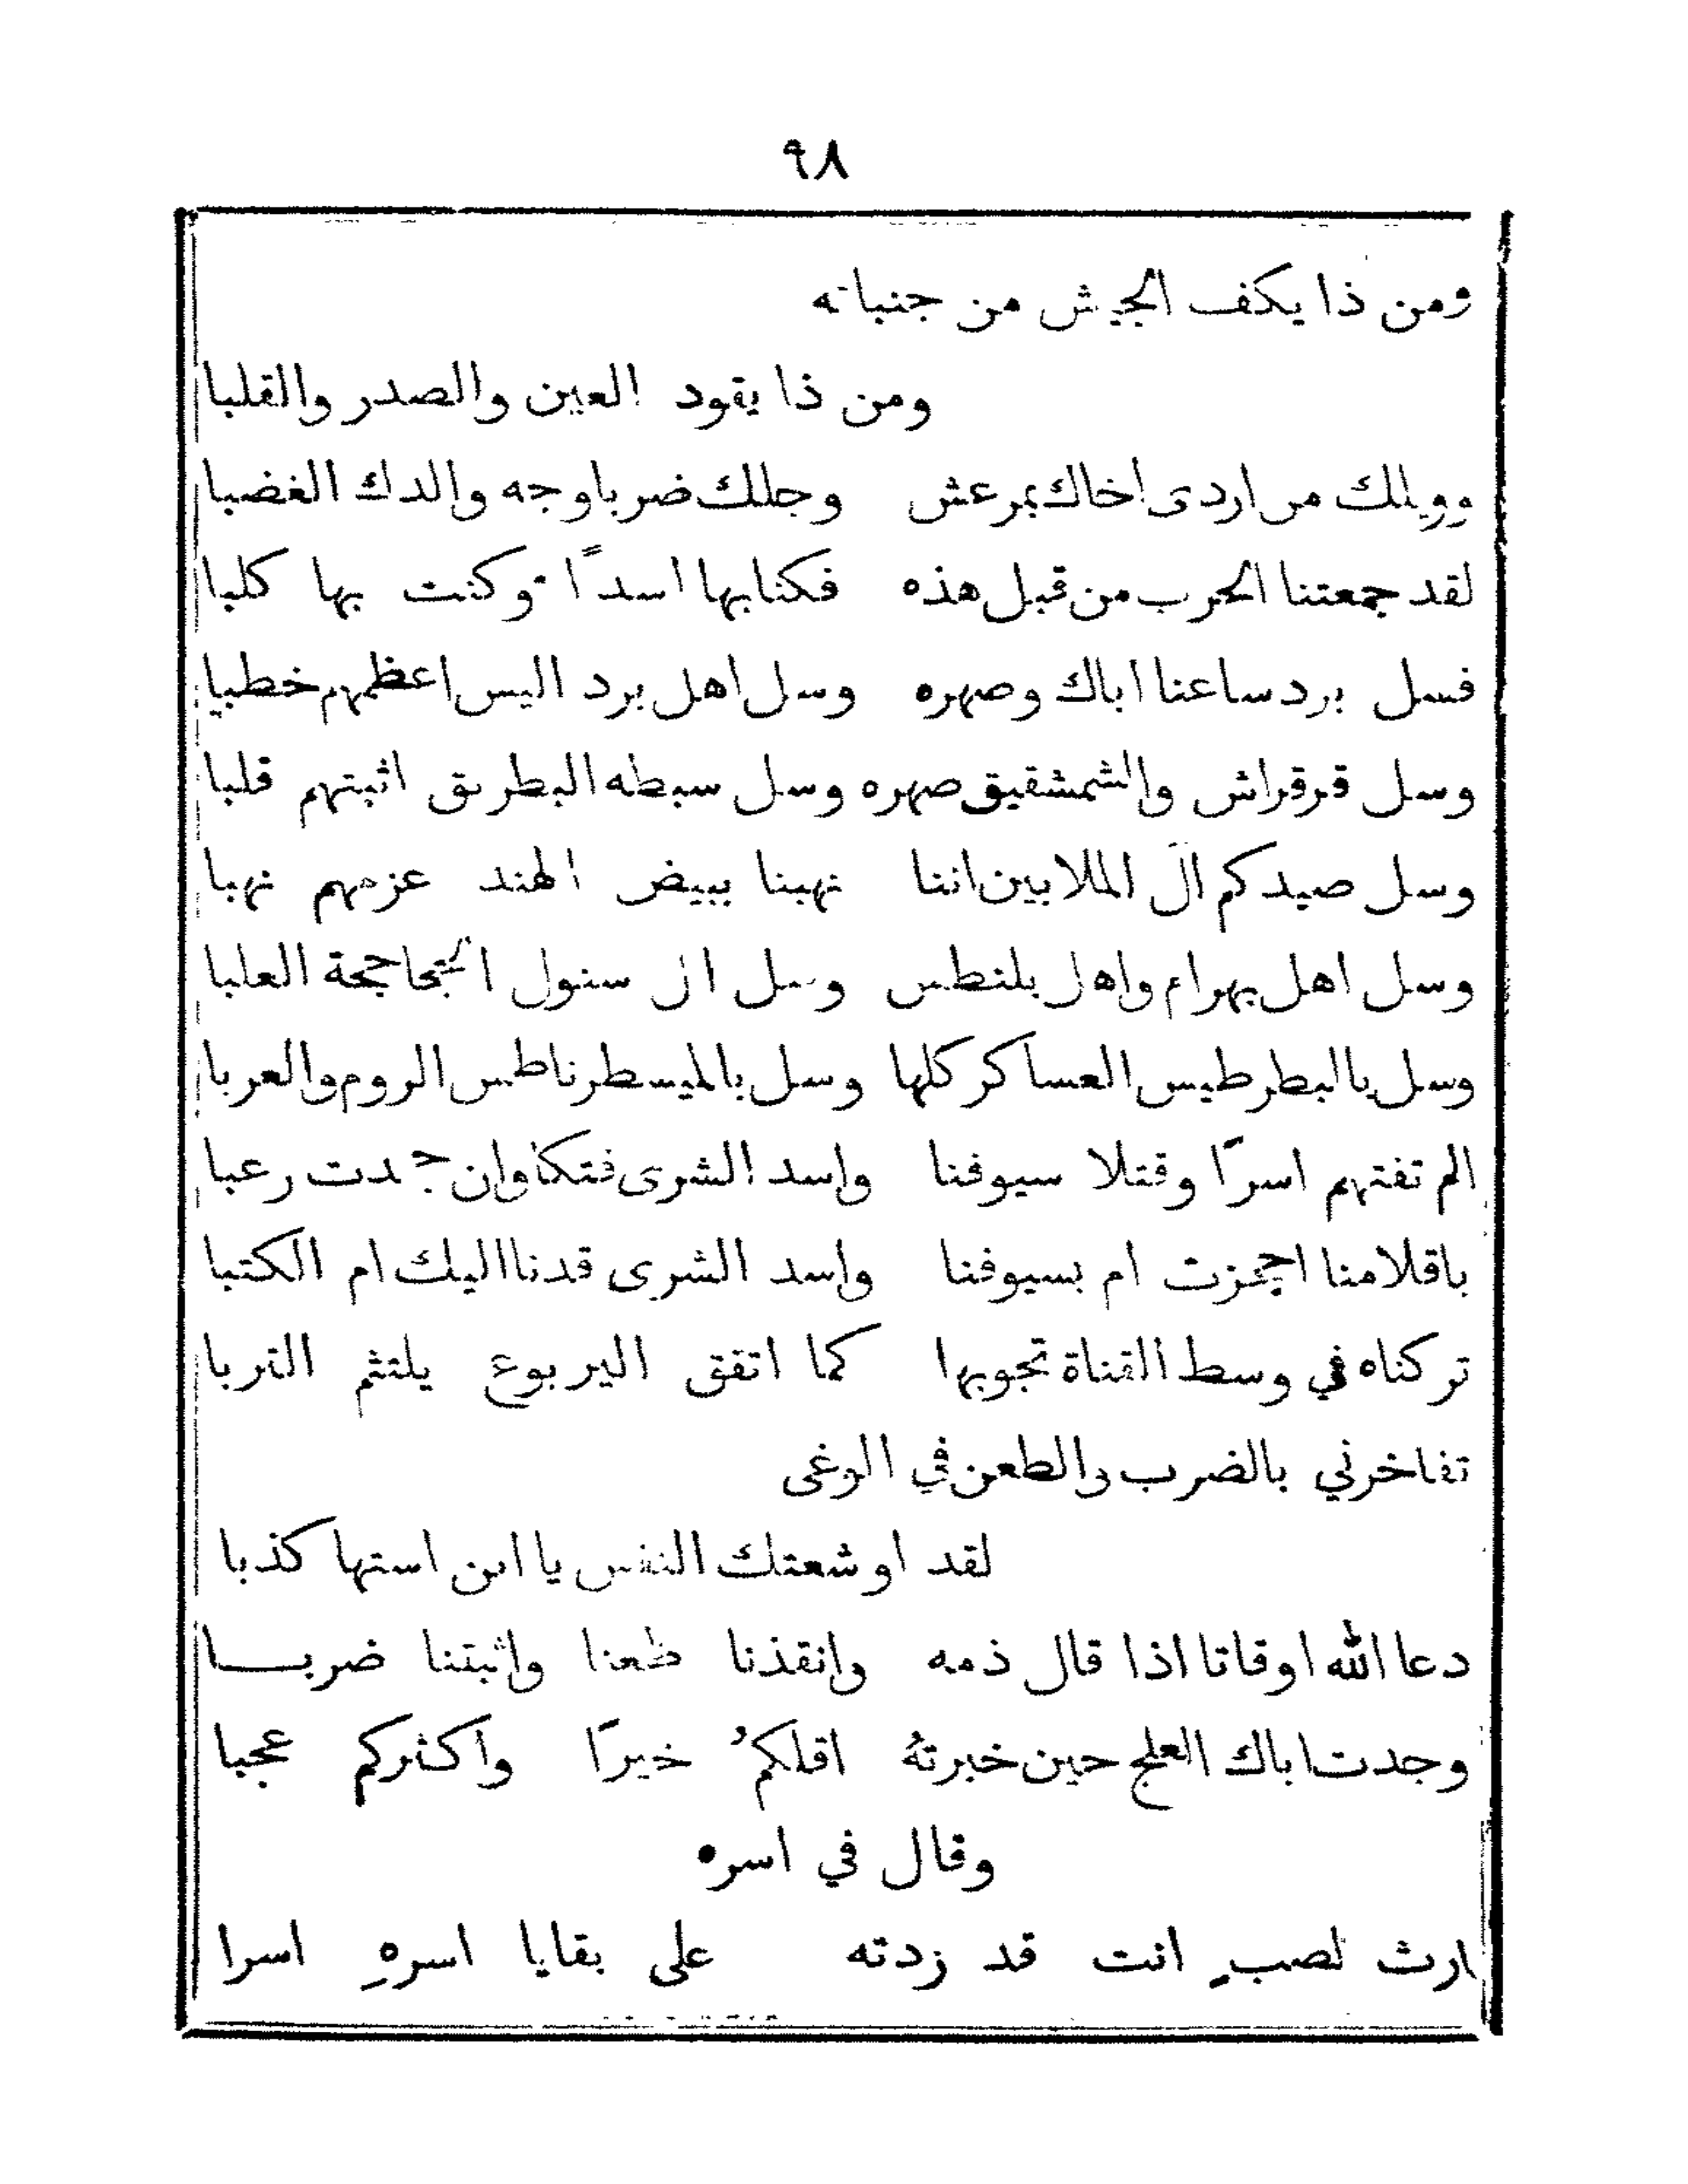 ٩٨
ومن ذا يكف الجيش من جنباته
ومن ذا يقود العين والصدر والقلبا
وويلك من اردى اخاك بمرعش وجللك ضربا وجه والدك الغضبا
لقد جمعتنا الحرب من قبل هذه فكنا بها اسدًا وكنت بها كلبا
فسل برد ساعنا اباك وصهره وسل اهل برد اليس اعظمهم خطبا
وسل قرقراش والشمشقيق صهره وسل سبطه البطريق اثبتهم قلبا
وسل صيدكم آل الملابين اننا نهبنا ببيض الهند عزمهم نهبا
وسل اهل بهرام واهل بلنطس وسل ال سنول الجحاجحة العلبا
وسل بالبطرطيس العساكر كلها وسل بالميسطرناطس الروم والعربا
الم تفتهم اسرًا وقتلا سيوفنا واسد الشرى فتكا وان جمدت رعبا
باقلامنا اجحزت ام بسيوفنا واسد الشرى قدنا اليك ام الكتبا
تركناه في وسط القناة تجوبها كما اتفق اليربوع يلتثم التربا
تفاخرني بالضرب والطعن في الوغى
لقد اوشعتك النفس يا ابن استها كذبا
دعا الله اوقاتا اذا قال ذمه وانقذنا طعنا واثبتنا ضربا
وجدت اباك العلج حين خبرتهُ اقلكمُ خيرًا واكثركم عجبا
وقال في اسره
ارث لصبٍ انت قد زدته على بقايا اسرهِ اسرا